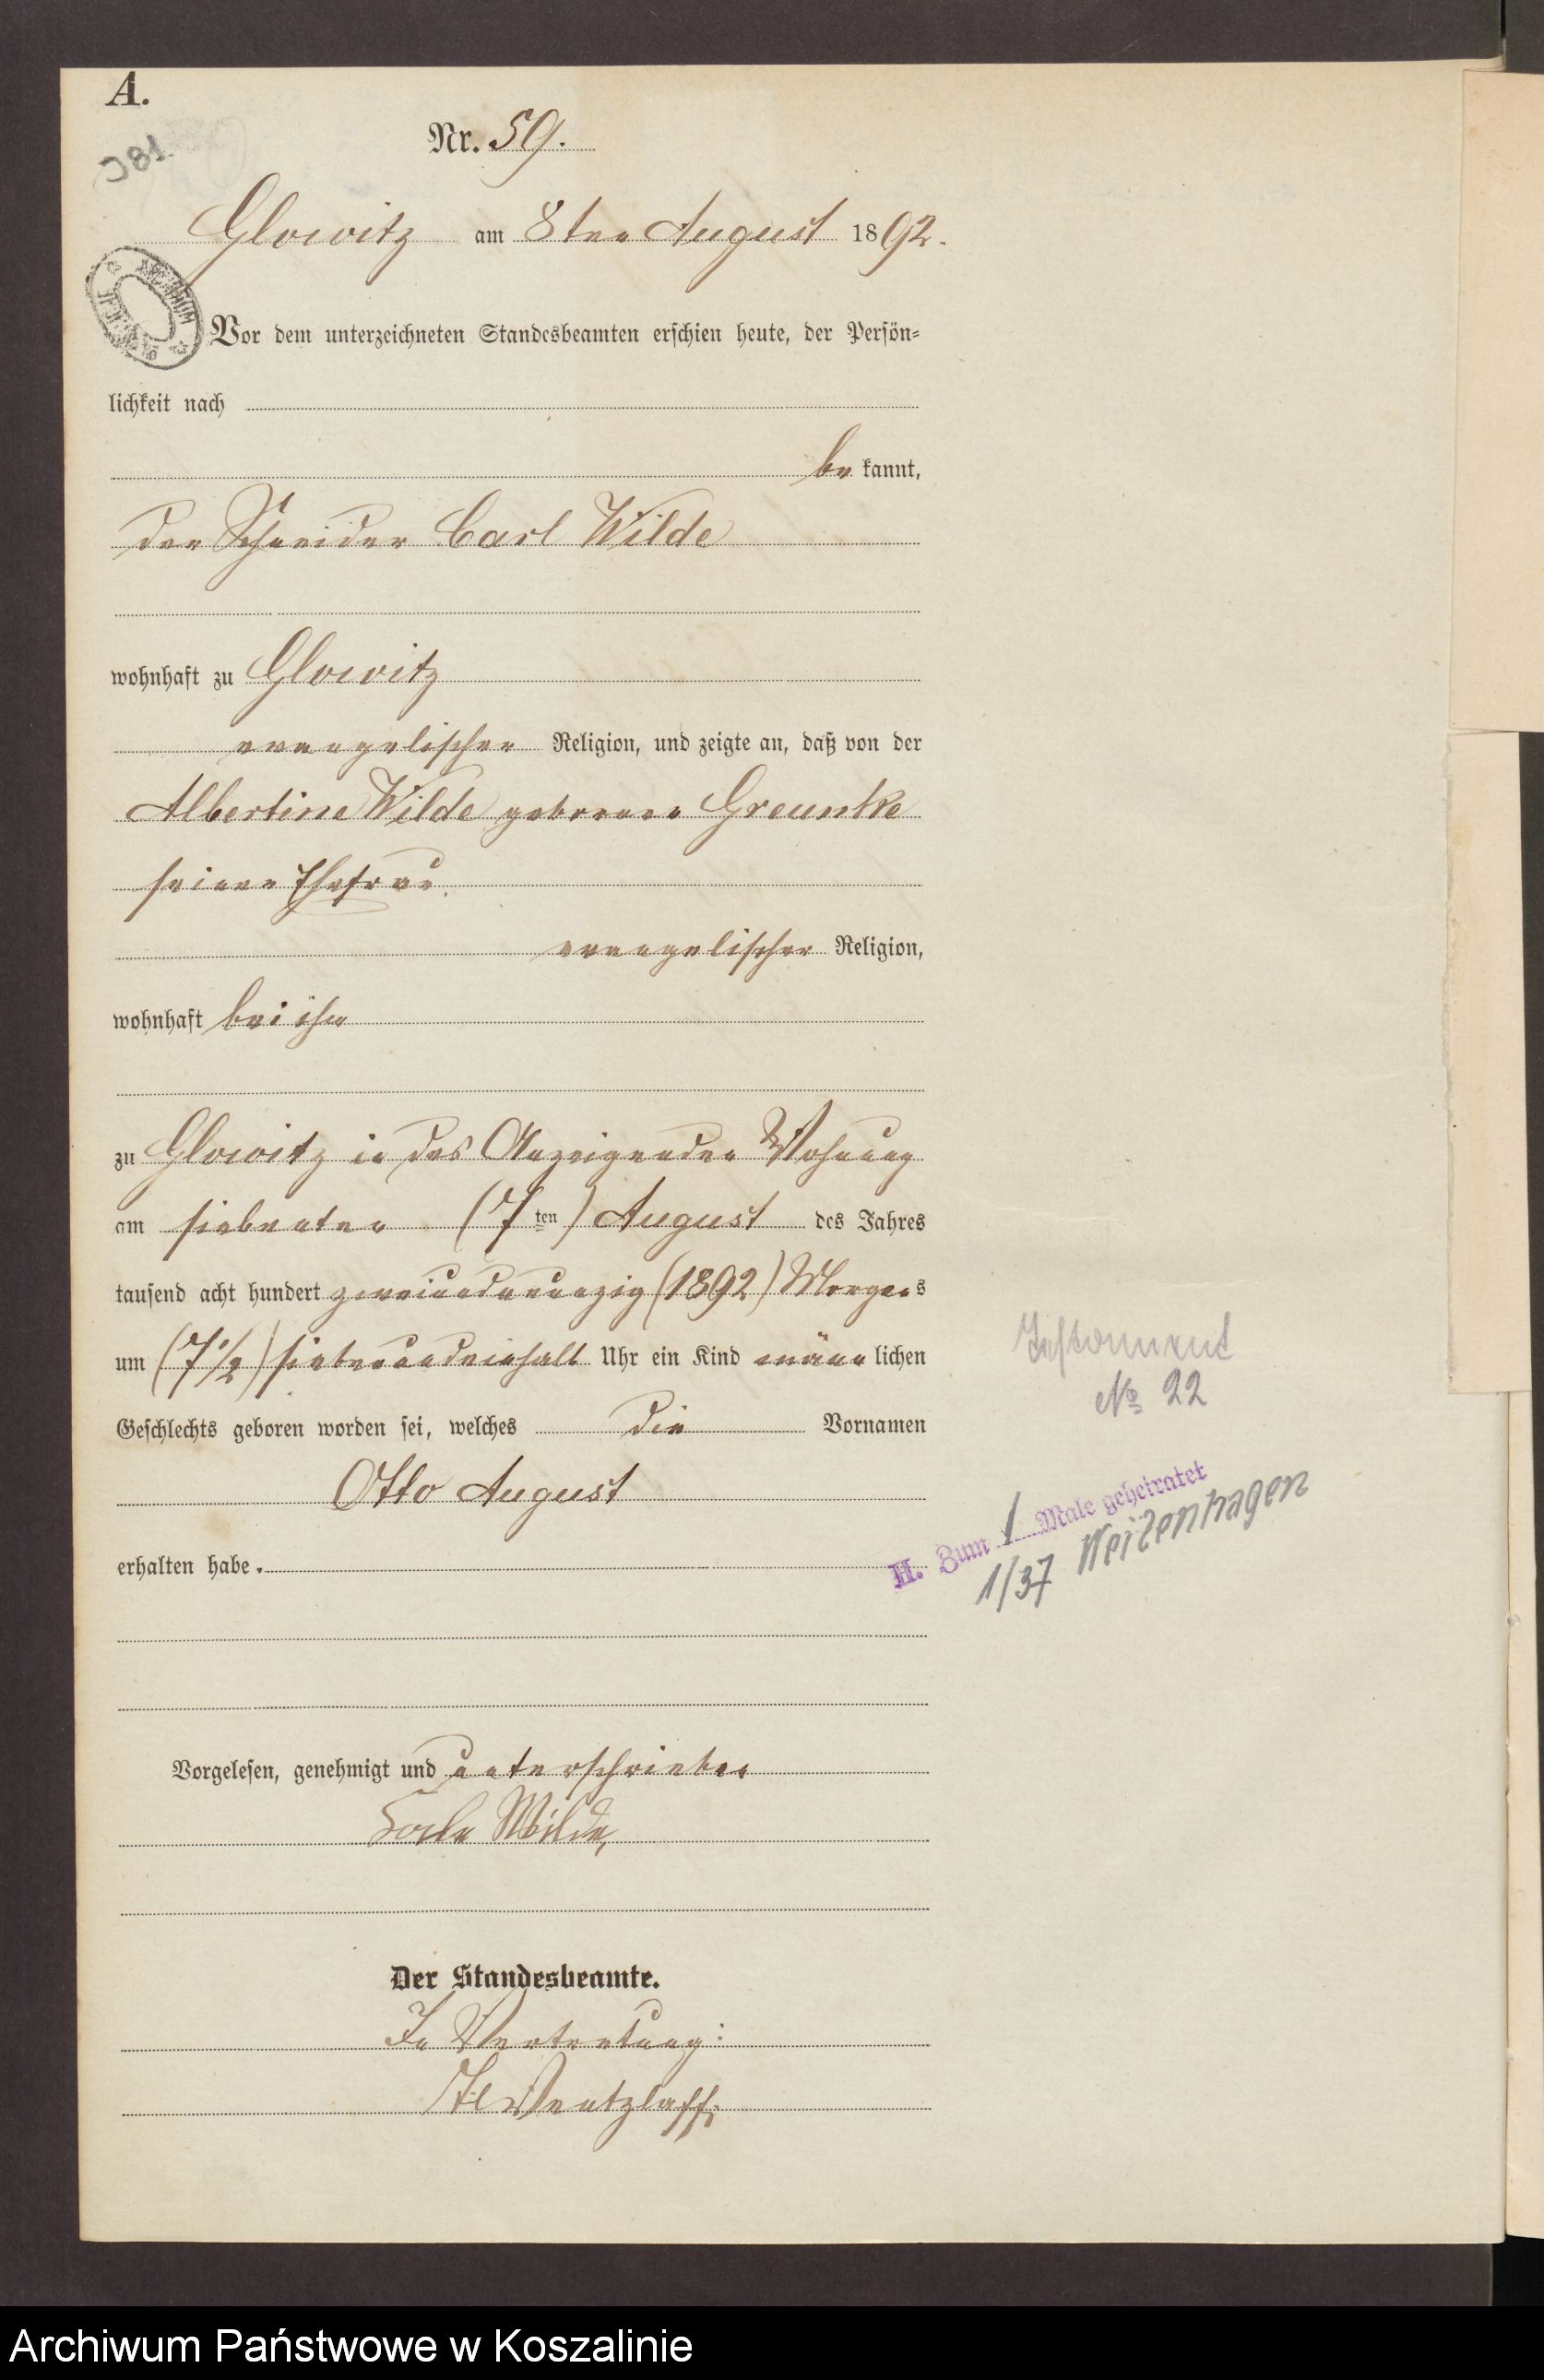 A.
J 81.
Nr. 59.
Glowitz am 8ten August 1892.
Vor dem unterzeichneten Standesbeamten erschien heute, der Persön=
lichkeit nach
bekannt,
der Schneider Carl Wilde
wohnhaft zu Glowitz
evangelischer Religion, und zeigte an, daß von der
Albertine Wilde geborenen Greunke
seiner Ehefrau
evangelischer Religion,
wohnhaft bei ihm
zu Glowitz in des Anzeigenden Wohnung
am siebenten (7ten) August des Jahres
tausend acht hundert zweiundneunzig (1892) Morgens
um (7 1/2) siebenundeinhalb Uhr ein Kind männlichen
Geschlechts geboren worden sei, welches die Vornamen
Otto August
erhalten habe.
Testament
№ 22
H. Zum 1 Male geheiratet
1/37 Weitenhagen
Vorgelesen, genehmigt und unterschrieben
Wilde
Der Standesbeamte.
In Vertretung:
Wentzlaff
Archiwum Państwowe w Koszalinie